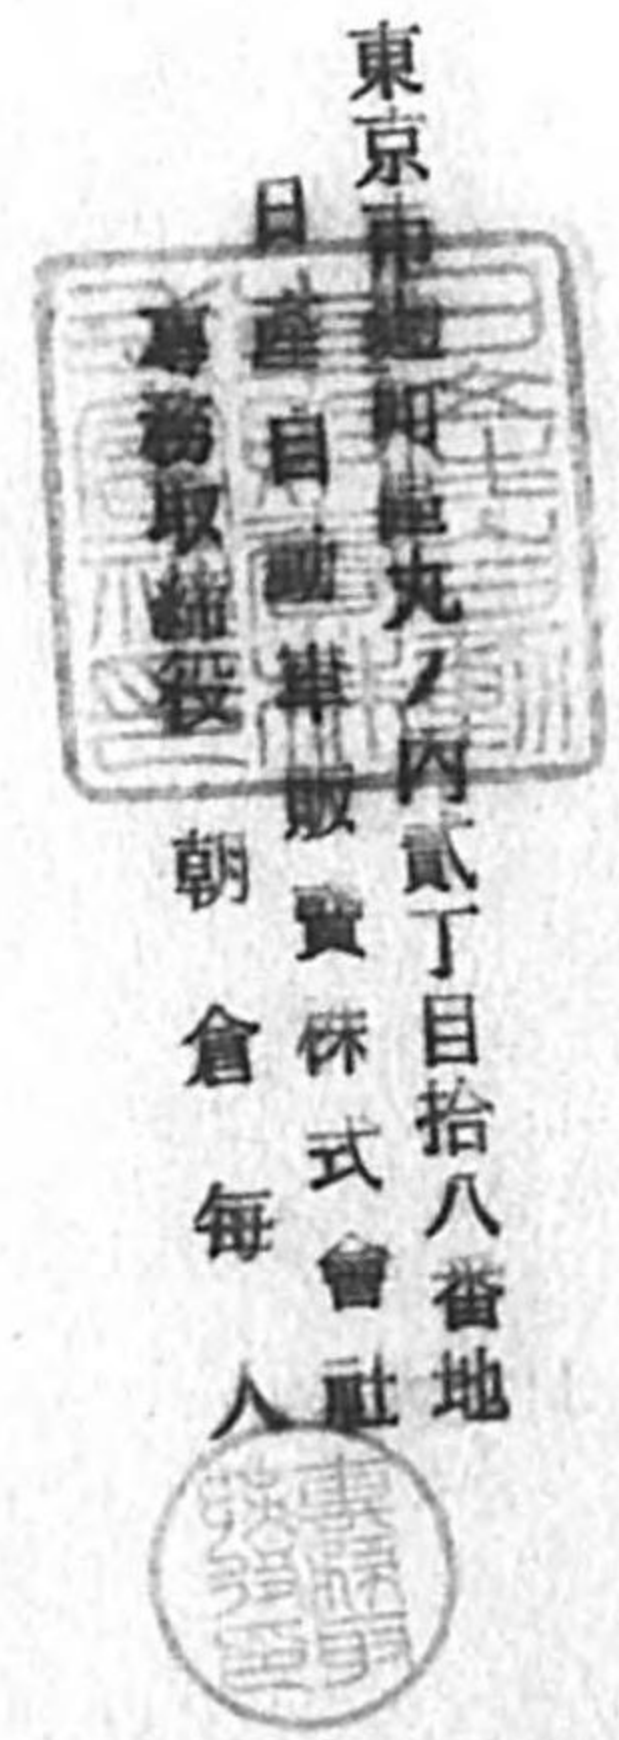 東京市麴町區丸ノ內貳丁目拾八番地
日產自動車販賣株式會社
專務取締役 朝倉每人